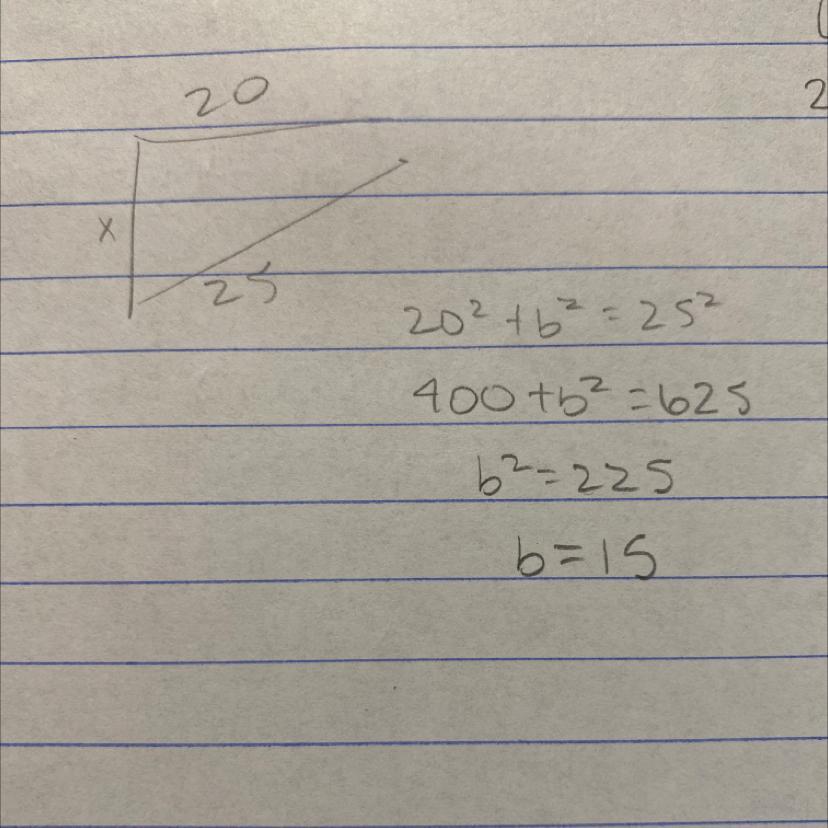 20
2
x
25
20² + b² = 25²
400 + b² = 625
b² = 225
b = 15